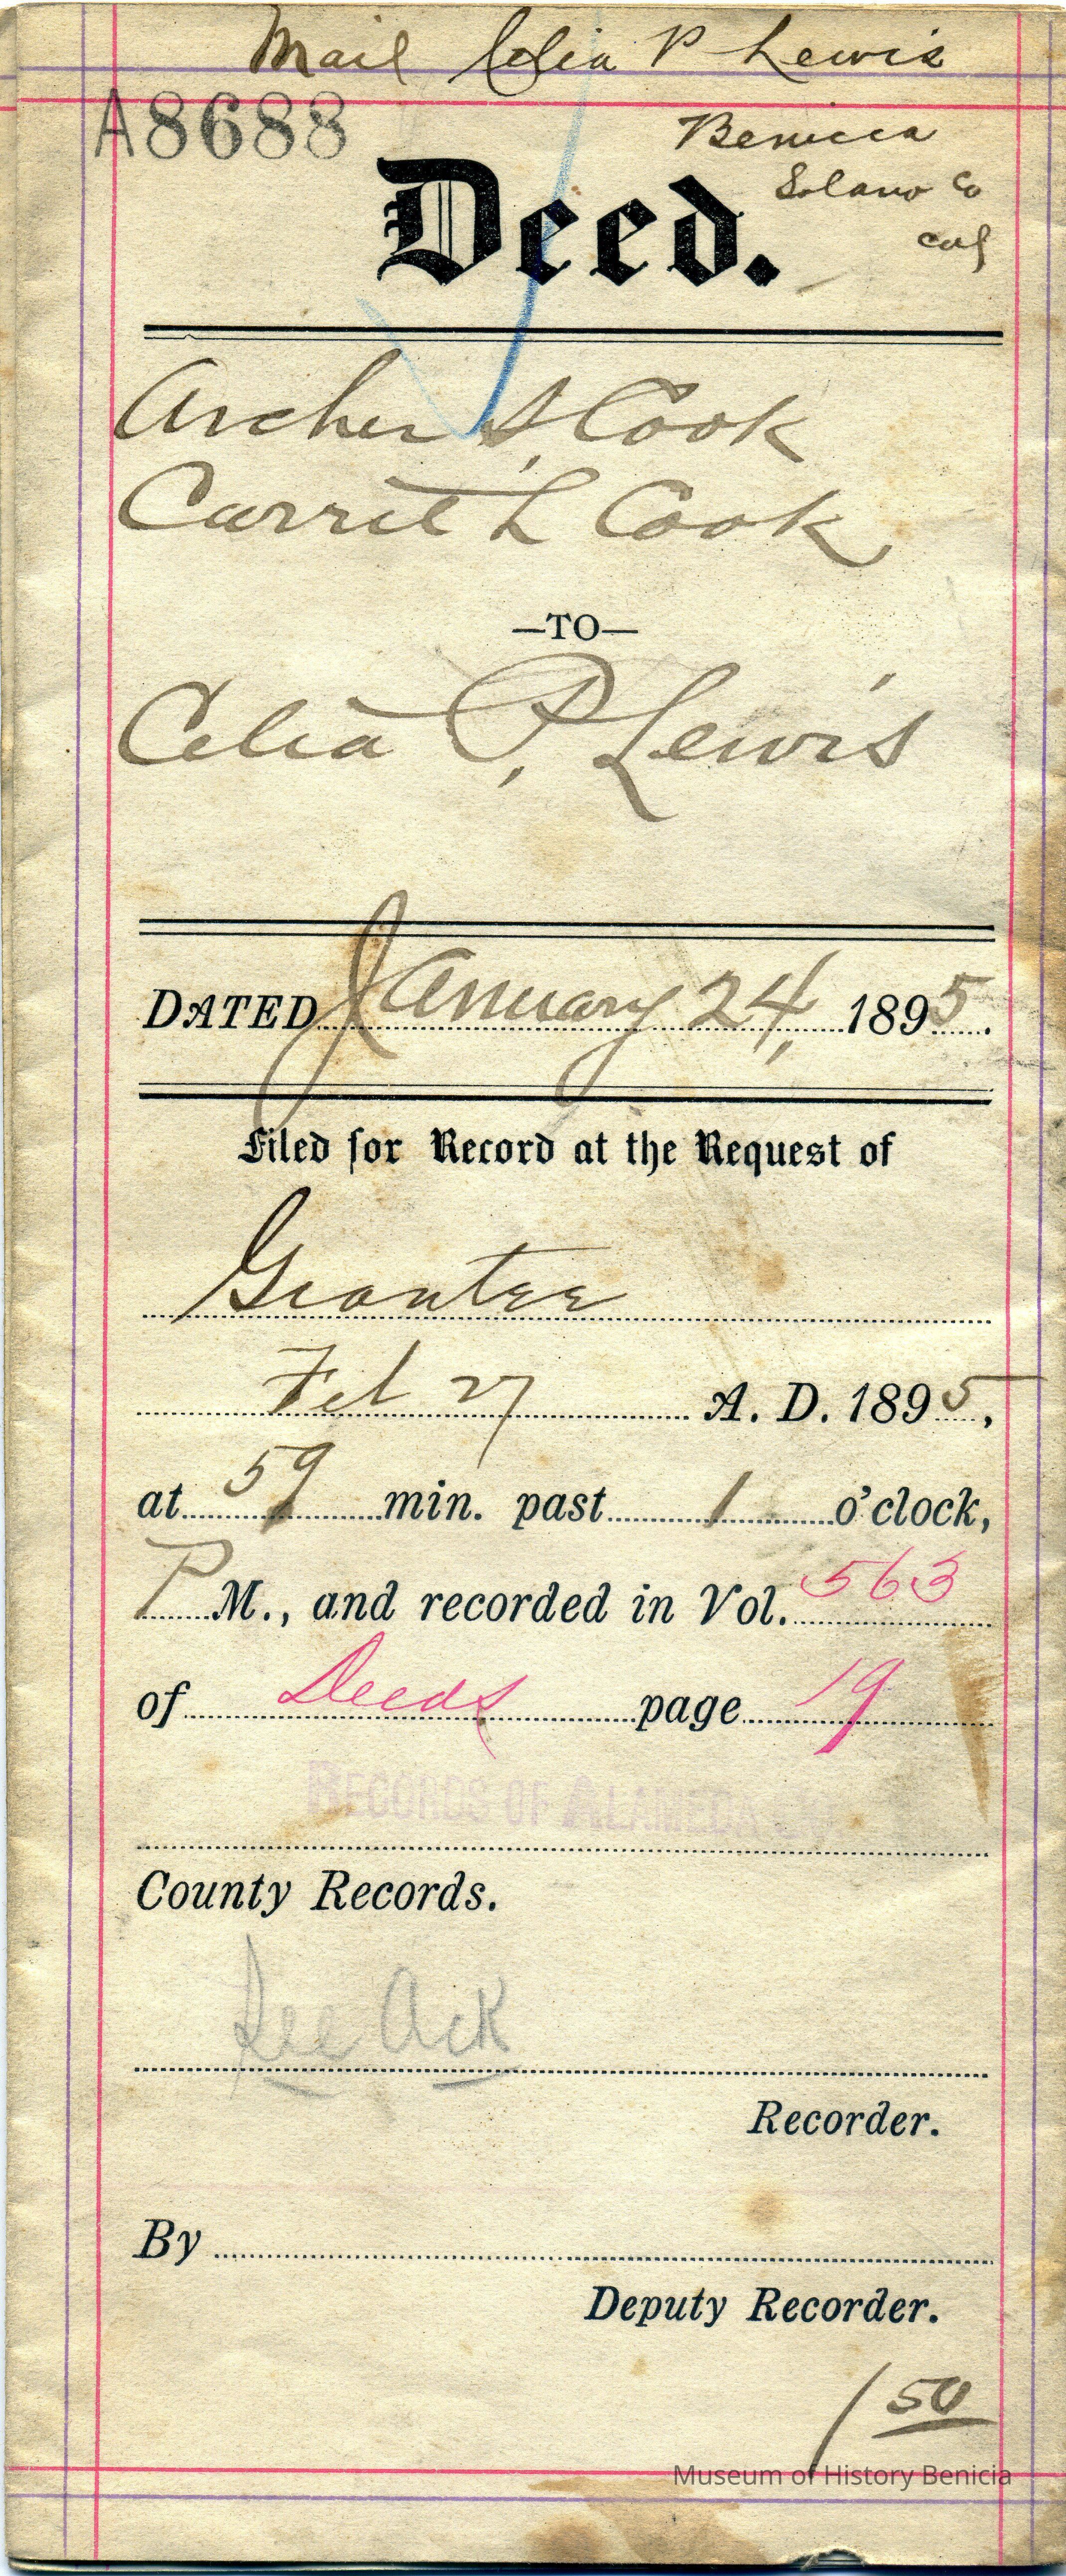 Mail Celia P Lewis
A8688
Benicia
Solano Co
Cal
Deed.
Archer S, Cook
Carrie L Cook
—TO—
Celia P, Lewis
DATED January 24, 1895.
Filed for Record at the Request of
Grantee
Feb 27 A. D. 1895,
at 59 min. past 1 o'clock,
P M., and recorded in Vol. 563
of Deeds page 19
RECORDS OF ALAMEDA CO.
County Records.
See Ack
Recorder.
By
Deputy Recorder.
1 50
Museum of History Benicia